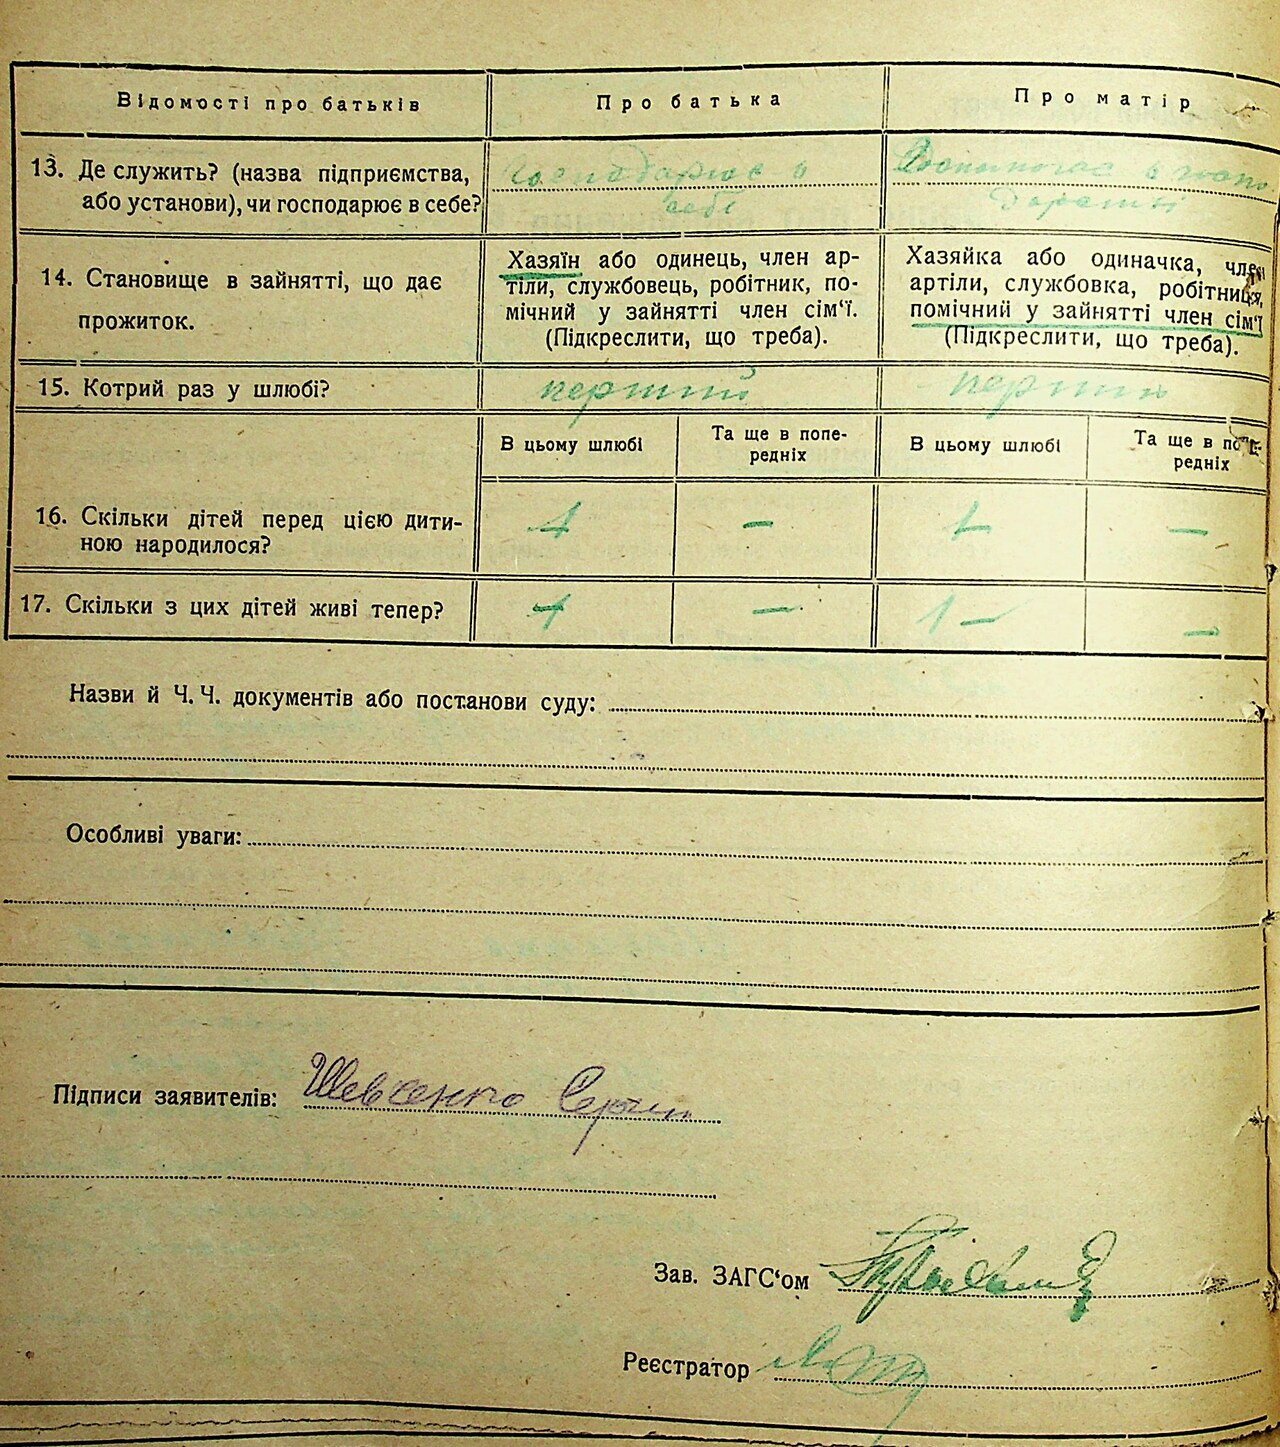 Відомості про батьків
Про батька
Про матір
13. Де служить? (назва підприємства,
або установи), чи господарює в себе?
господарює в
себі
Допомогає в госпо-
дарстві
14. Становище в зайнятті, що дає
прожиток.
Хазяїн або одинець, член ар-
тіли, службовець, робітник, по-
мічний у зайнятті член сім‘ї.
(Підкреслити, що треба).
Хазяйка або одиначка, член
артіли, службовка, робітниця,
помічний у зайнятті член сім‘ї
(Підкреслити, що треба).
15. Котрий раз у шлюбі?
перший
перший
В цьому шлюбі
Та ще в попе-
редніх
В цьому шлюбі
Та ще в попе-
редніх
16. Скільки дітей перед цією дити-
ною народилося?
1 — 1 —
17. Скільки з цих дітей живі тепер?
1 — 1 — —
Назви й Ч. Ч. документів або постанови суду:
Особливі уваги:
Підписи заявителів: Шевченко Сергій
Зав. ЗАГС‘ом
Реєстратор